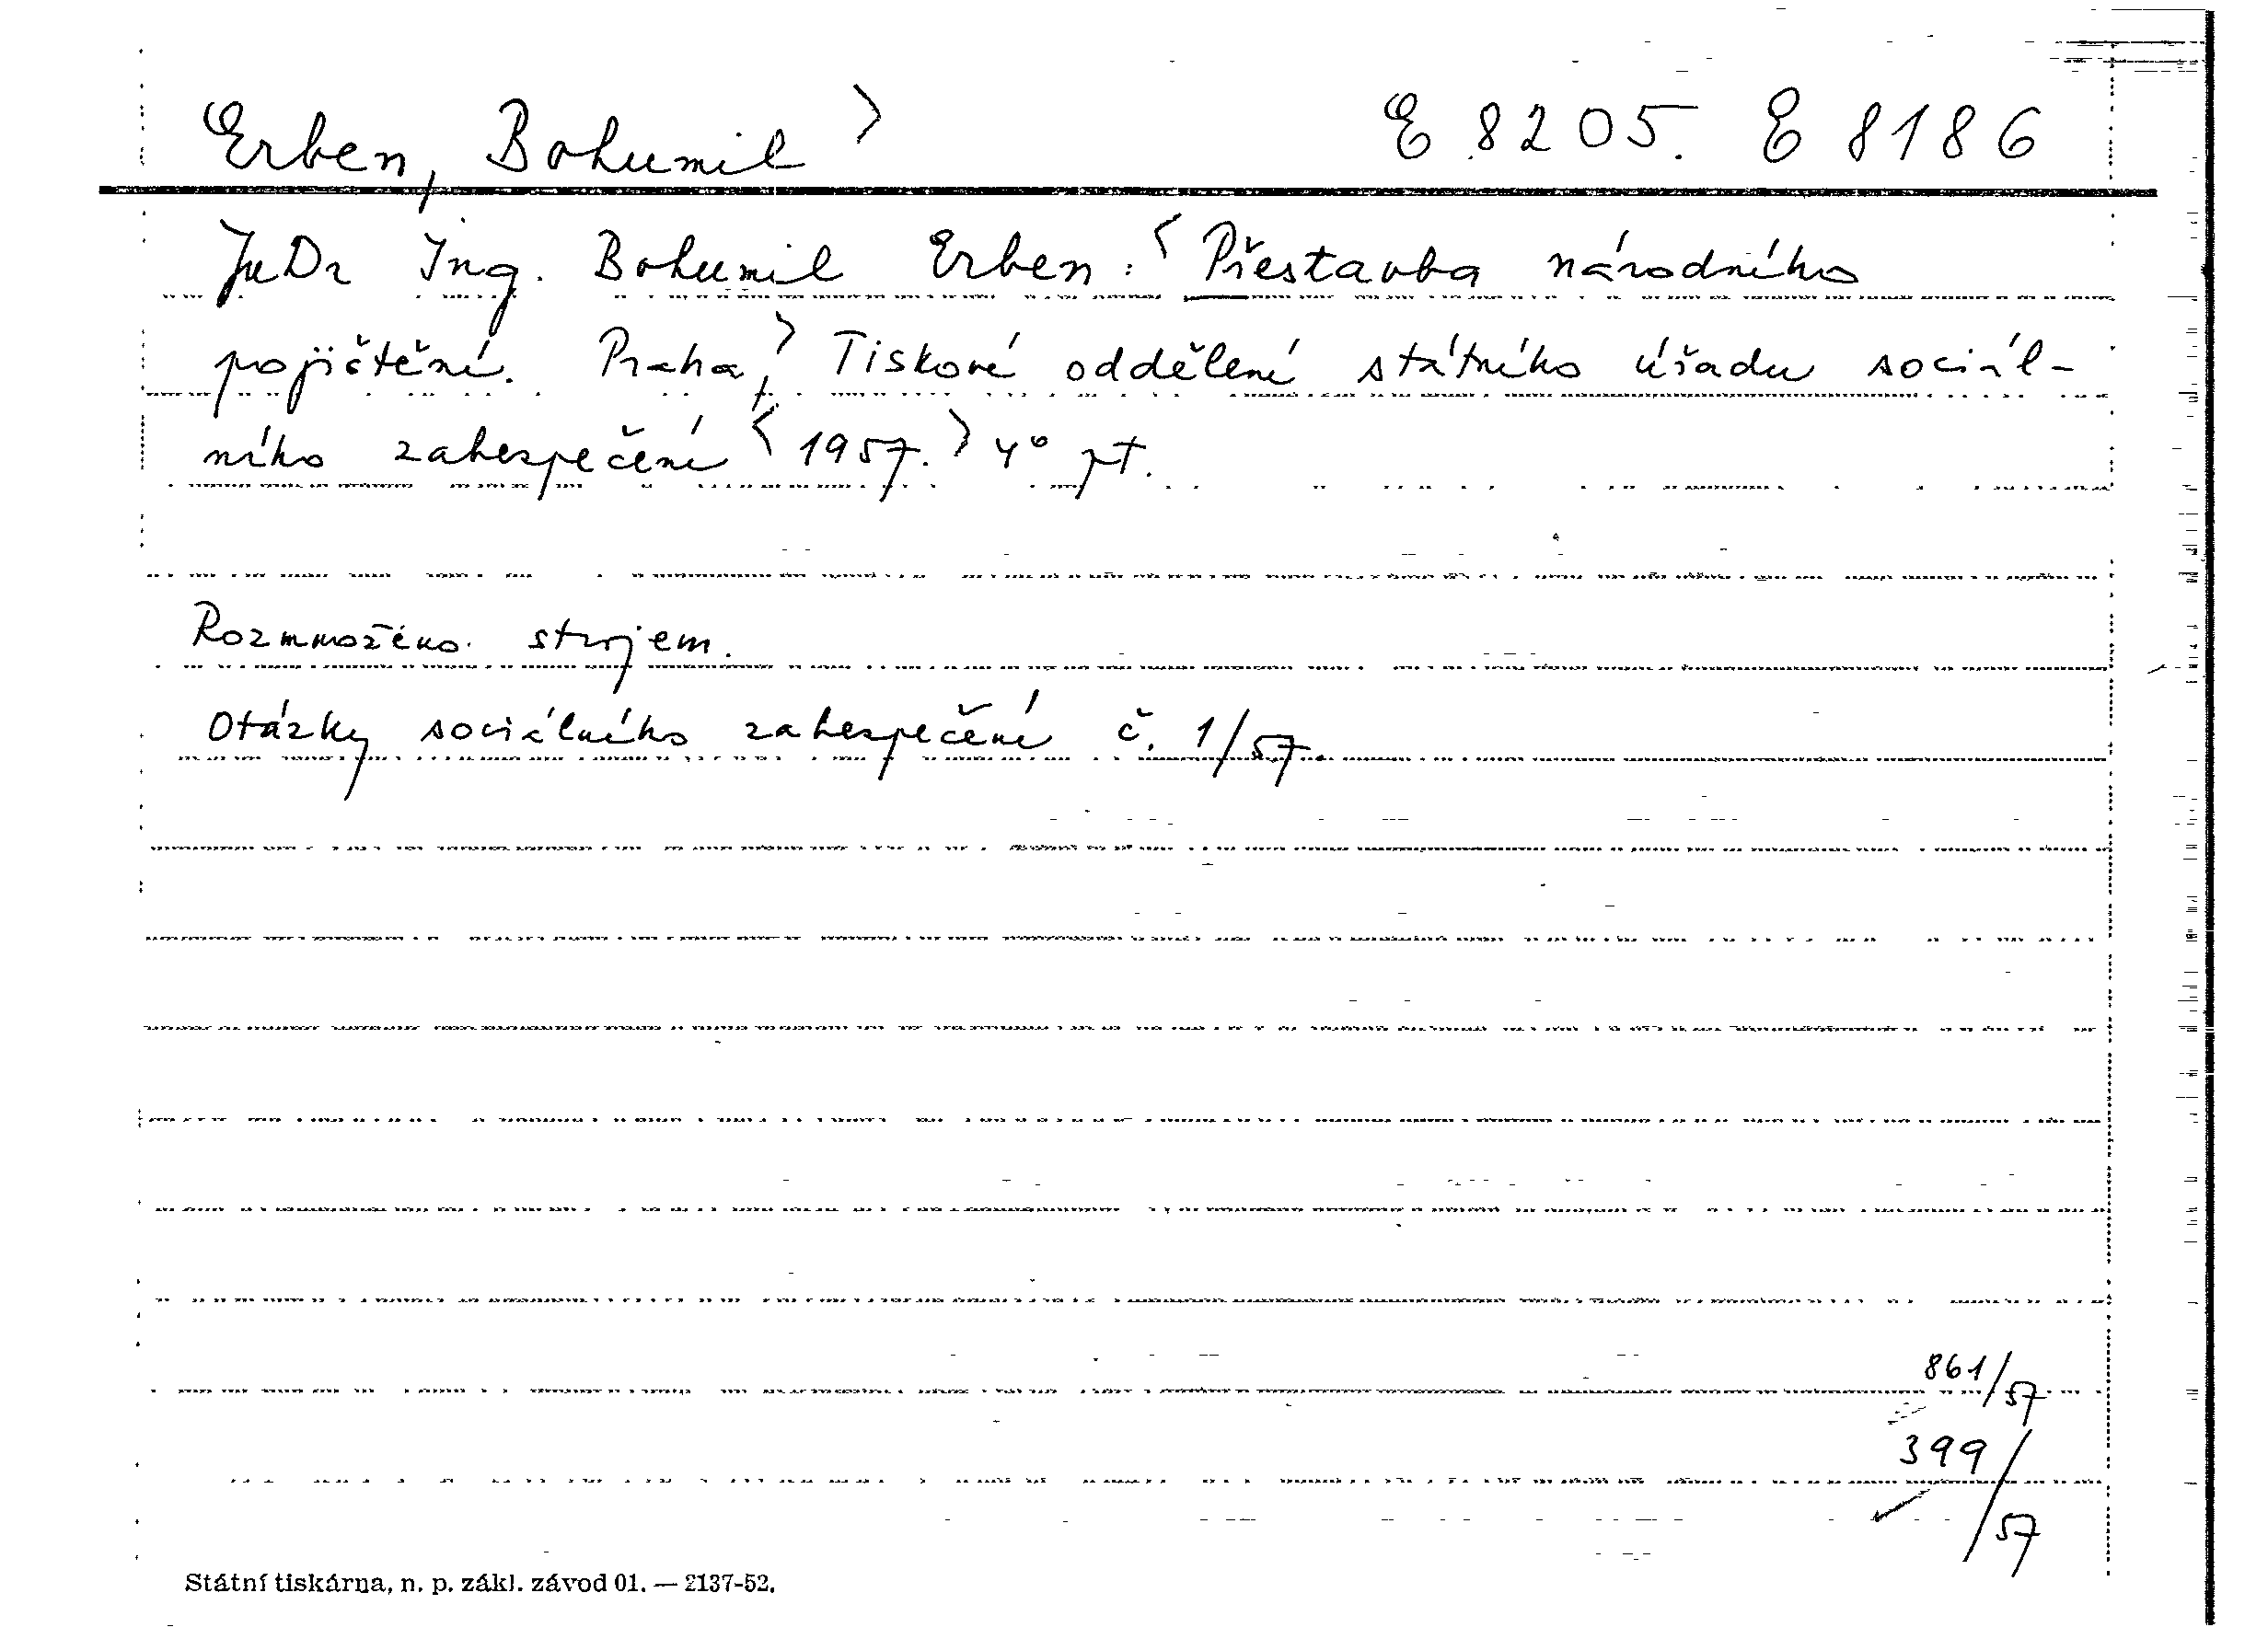 Erben, Bohumil > E 8205. E 8186
JuDr Ing. Bohumil Erben: < Přestavba národního
pojištění. Praha, > Tiskové oddělení státního úřadu sociál-
ního zabezpečení < 1957. > 4°
Rozmnoženo strojem.
Otázky sociálního zabezpečení č. 1/57.
861/57
399/57
Státní tiskárna, n. p. zákl. závod 01. — 2137-52.